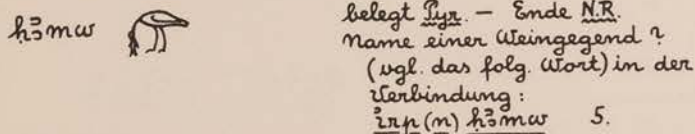 ḥꜣmw
belegt Pyr. — Ende N.R.
Name einer Weingegend?
(vgl. das folg. Wort) in der
Verbindung:
ı͗rp (n) ḥꜣmw 5.